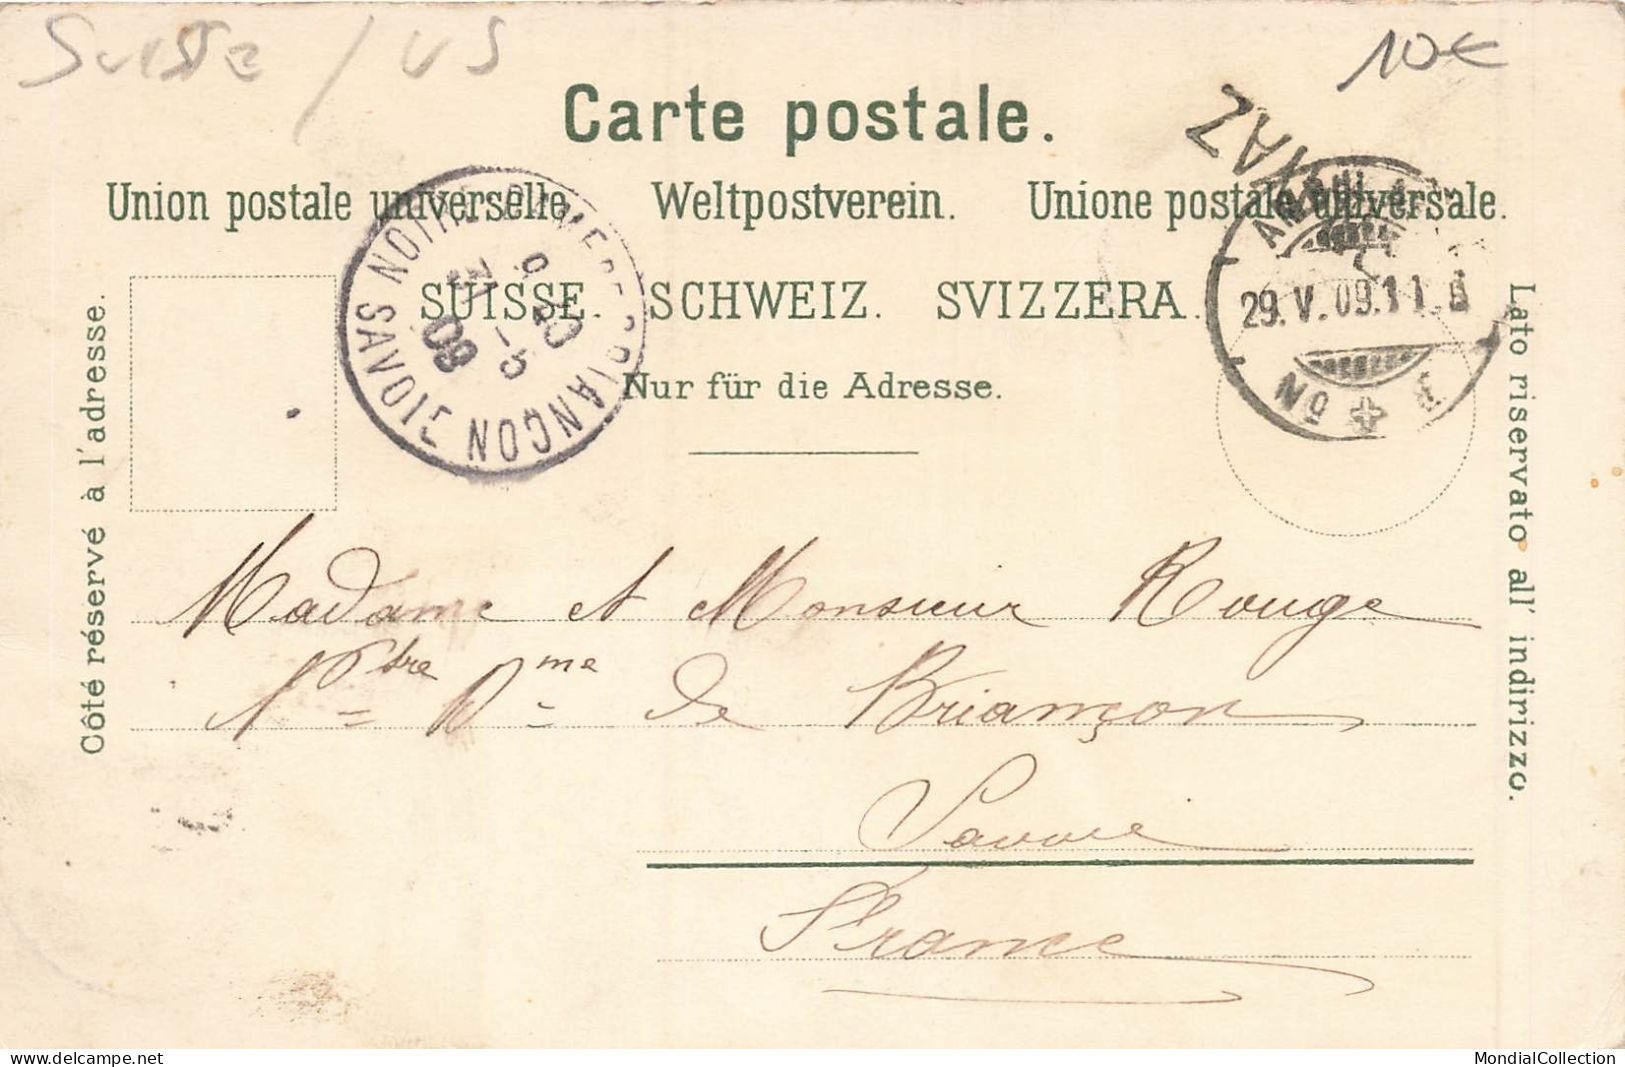 Suisse / US
10€
Carte postale.
Union postale universelle. Weltpostverein. Unione postale universale.
SUISSE. SCHWEIZ. SVIZZERA.
Nur für die Adresse.
Côté réservé à l'adresse.
Lato riservato all' indirizzo.
NOTRE-DAME-DE-BRIANÇON
SAVOIE
31 -5
09
29.V.09.11
No
Madame et Monsieur Rouge
Ntre Dme de Briançon
Savoie
France
MondialCollection